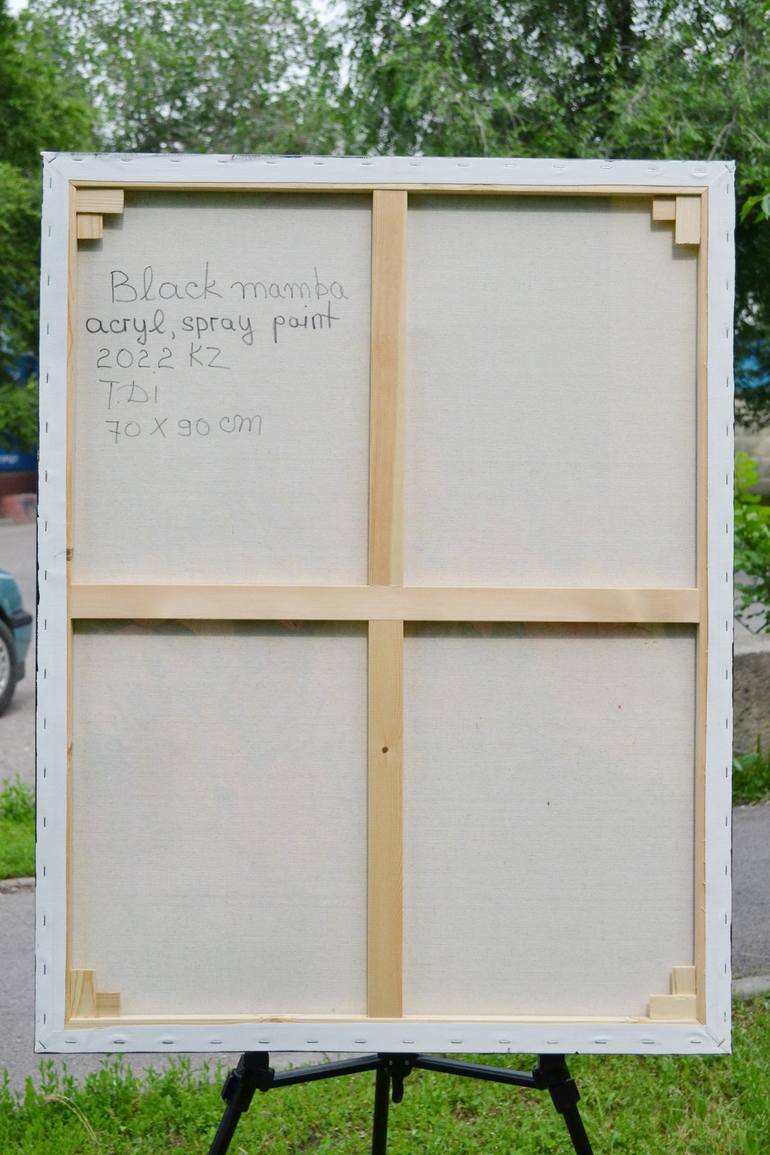 Black mamba
acryl, spray paint
2022 KZ
T.D1
70 X 90 cm